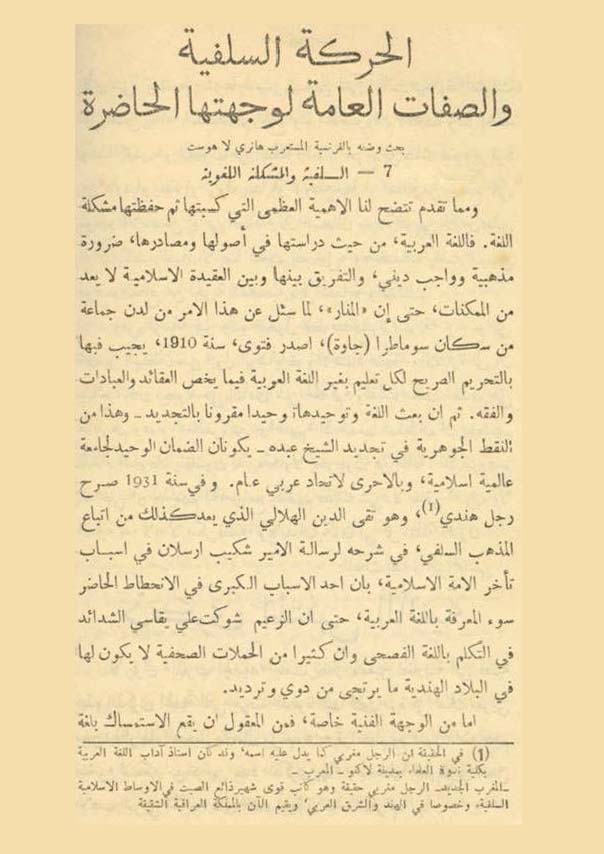 الحركة السلفية
والصفات العامة لوجهتها الحاضرة
بحث وضعه بالفرنسية المستعرب هانري لاهوست
7 — السلفية والمشكلة اللغوية
ومما تقدم تتضح لنا الاهمية العظمى التي كسبتها ثم حفظتها مشكلة
اللغة. فاللغة العربية، من حيث دراستها في أصولها ومصادرها، ضرورة
مذهبية وواجب ديني، والتفريق بينها وبين العقيدة الاسلامية لا يعد
من الممكنات، حتى إن «المنار»، لما سئل عن هذا الامر من لدن جماعة
من سكان سوماطرا (جاوة)، اصدر فتوى، سنة 1910، يجيب فيها
بالتحريم الصريح لكل تعليم بغير اللغة العربية فيما يخص العقائد والعبادات
والفقه. ثم ان بعث اللغة وتوحيدها وحيدا مقرونا بالتجديد — وهذا من
النقط الجوهرية في تجديد الشيخ عبده — يكونان الضمان الوحيد لجامعة
عالمية اسلامية، وبالاحرى لاتحاد عربي عام. وفي سنة 1931 صرح
رجل هندي(1)، وهو تقى الدين الهلالي الذي يعد كذلك من اتباع
المذهب السلفي، في شرحه لرسالة الامير شكيب ارسلان في اسباب
تأخر الامة الاسلامية، بان احد الاسباب الكبرى في الانحطاط الحاضر
سوء المعرفة باللغة العربية، حتى ان الزعيم شوكت علي يقاسي الشدائد
في التكلم باللغة الفصحى وان كثيرا من الحملات الصحفية لا يكون لها
في البلاد الهندية ما يرتجى من دوي وترديد.
اما من الوجهة الفنية خاصة، فمن المعقول ان يقع الاستمساك بلغة
(1) في الحقيقة ان الرجل مغربي كما يدل عليه اسمه، وقد كان استاذ آداب اللغة العربية
بكلية ندوة العلماء بمدينة لاكنو — المغرب —
— المغرب الجديد — الرجل مغربي حقيقة وهو كاتب قوى شهير ذائع الصيت في الاوساط الاسلامية
السلفية، وخصوصا في الهند والشرق العربي، ويقيم الآن بالمملكة العراقية الشقيقة